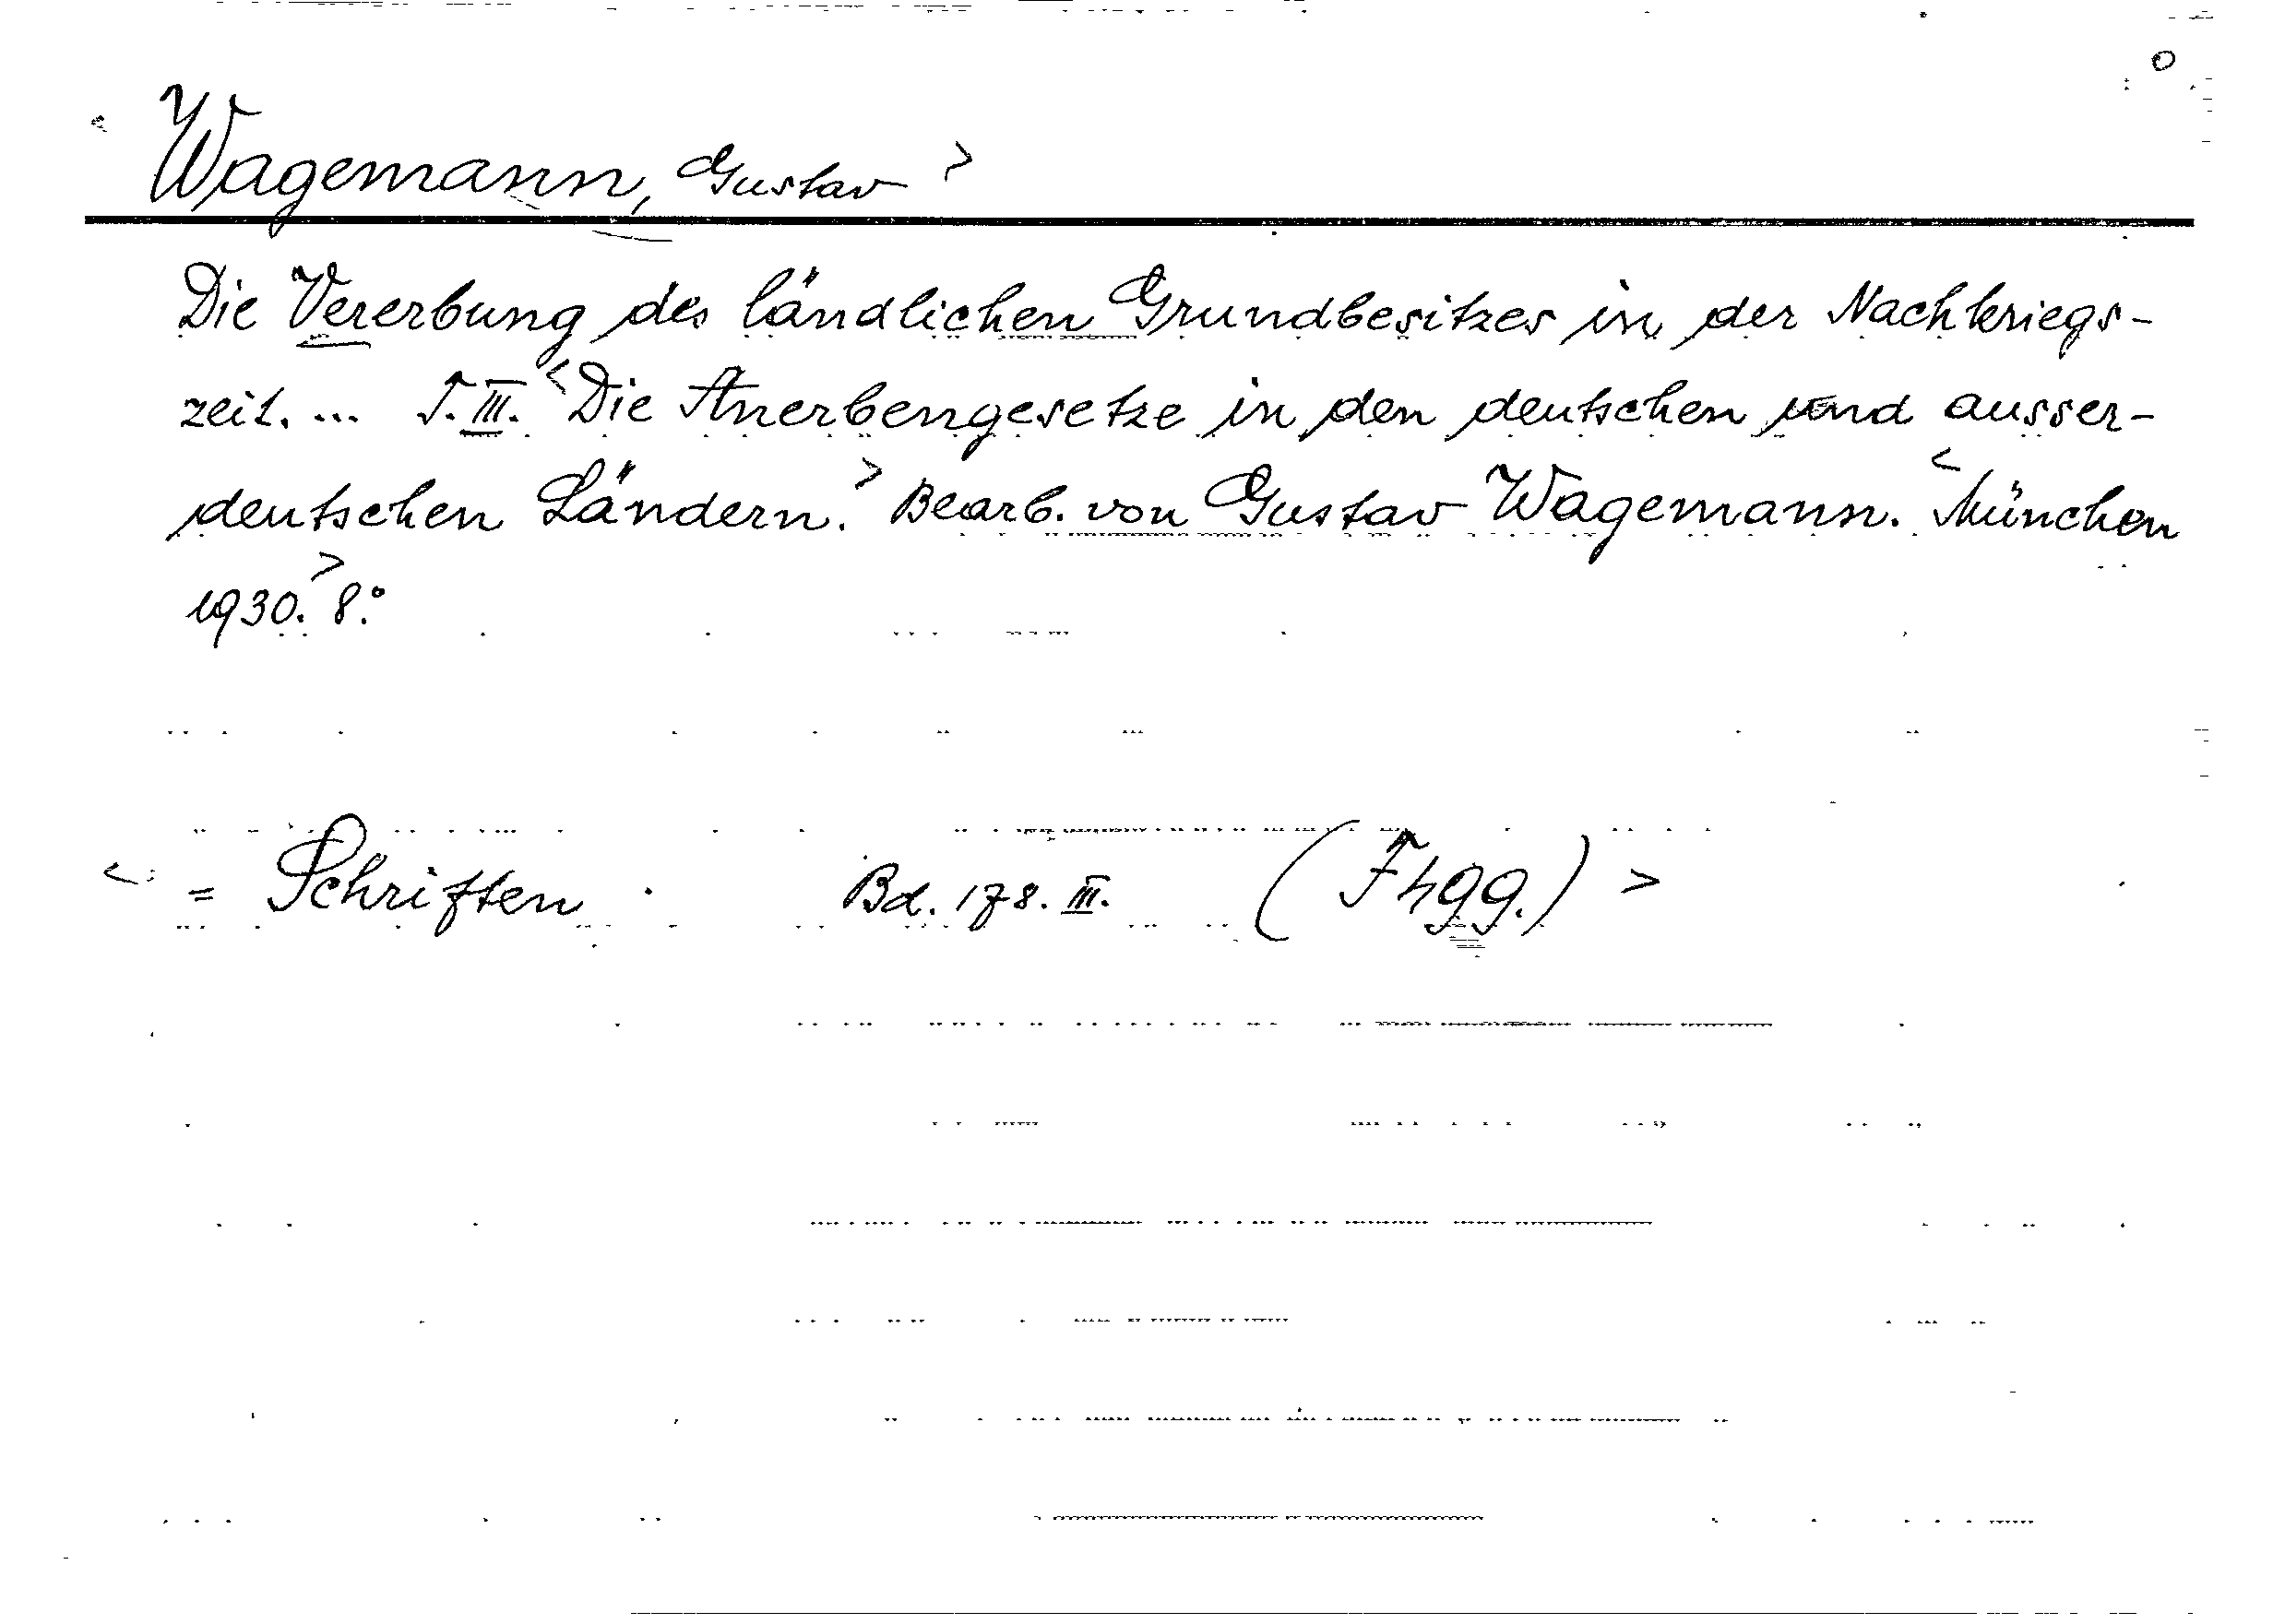 < Wagemann, Gustav >
Die Vererbung des ländlichen Grundbesitzes in der Nachkriegs-
zeit. ... T. III. <Die Anerbengesetze in den deutschen und ausser-
deutschen Ländern.> Bearb. von Gustav Wagemann. <München
1930.> 8.°
< = Schriften Bd. 178. III. (Fhgg.) >